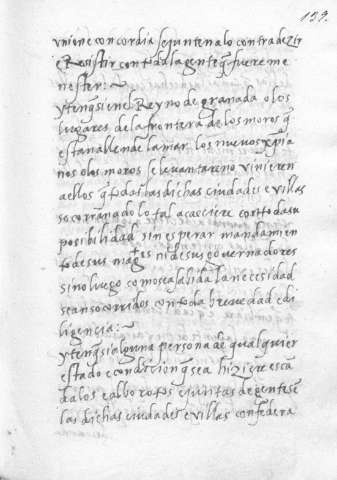 159.
union e concordia se junten a lo contradezir
e Resistir con toda la gente q̃ fuere me
nester:~
yten q̃ si en el Reyno de granada o los
lugares de la frontera de los moros q̃
estan allende la mar los nuevos xp̃ia
nos o los moros se levantaren o vinieren
a ellos q̃ todas las dichas ciudades e villas
socorran a do lo tal acaeciere con toda su
posibilidad sin esperar mandamien
to de sus mag.es ni de sus governadores
sino luego como sea sabida la necesidad
sean socorridos con toda brevedad e di
ligencia:~
yten q̃ si alguna persona de qualquier
estado e condicion q̃ sea hiziere escan
dalos e alborotos e juntas de gentes en
las dichas ciudades e villas confedera